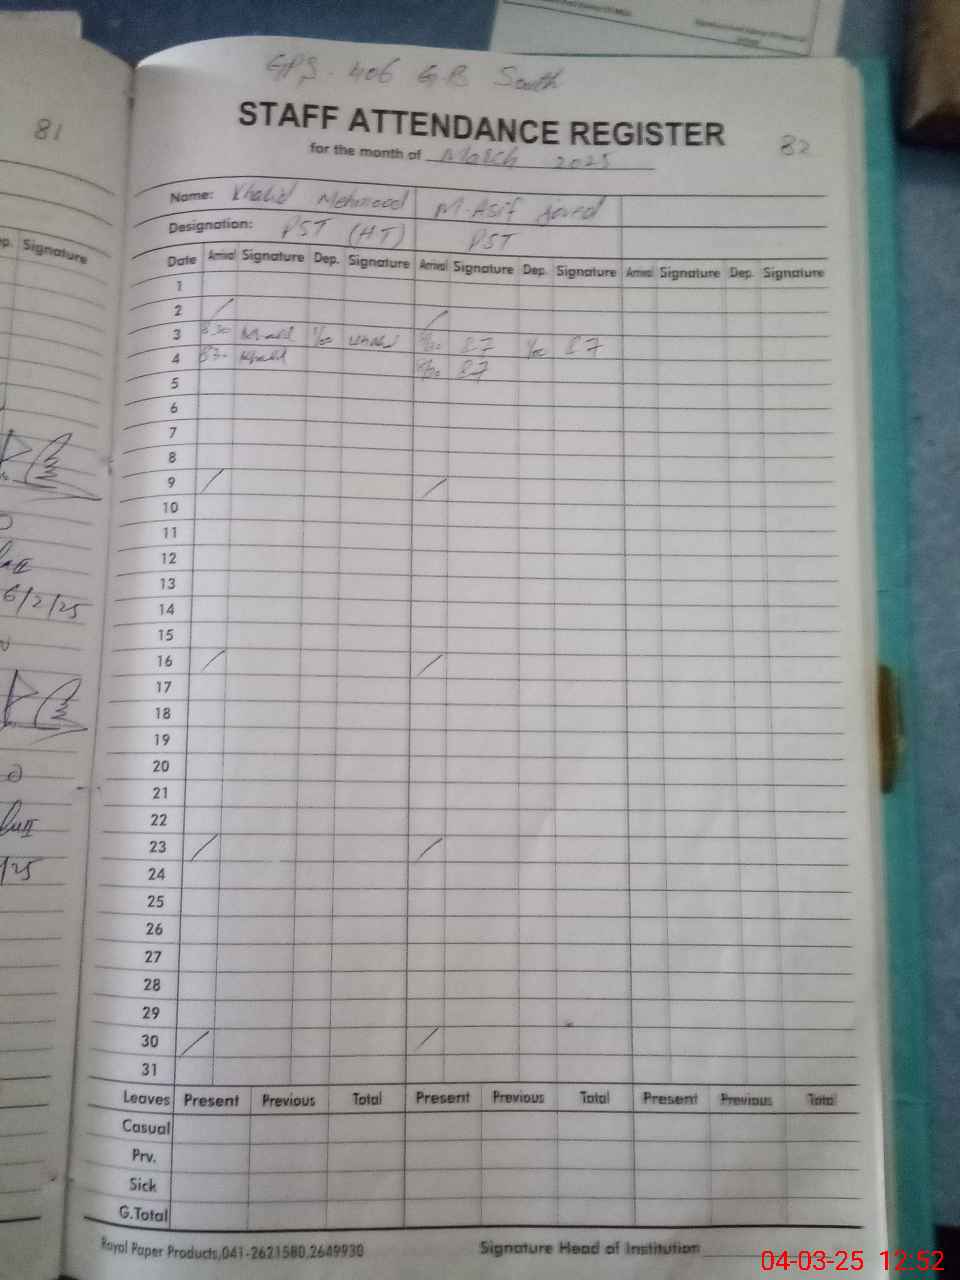 81
GPS. 406 G.B South
STAFF ATTENDANCE REGISTER
82
for the month of March 2025
Name: Khalid Mehmood M. Asif Javed
Designation: PST (HT) PST
Date Arrival Signature Dep. Signature Arrival Signature Dep. Signature Arrival Signature Dep. Signature
Signature
1
2
3
4 Khalid
5
6
7
8
9
10
11
12
13
14
15
16
17
18
19
20
21
22
23
24
25
26
27
28
29
30
31
6/2/25
/25
Leaves Present Previous Total Present Previous Total Present Previous Total
Casual
Prv.
Sick
G.Total
Royal Paper Products,041-2621580,2649930 Signature Head of Institution
04-03-25 12:52